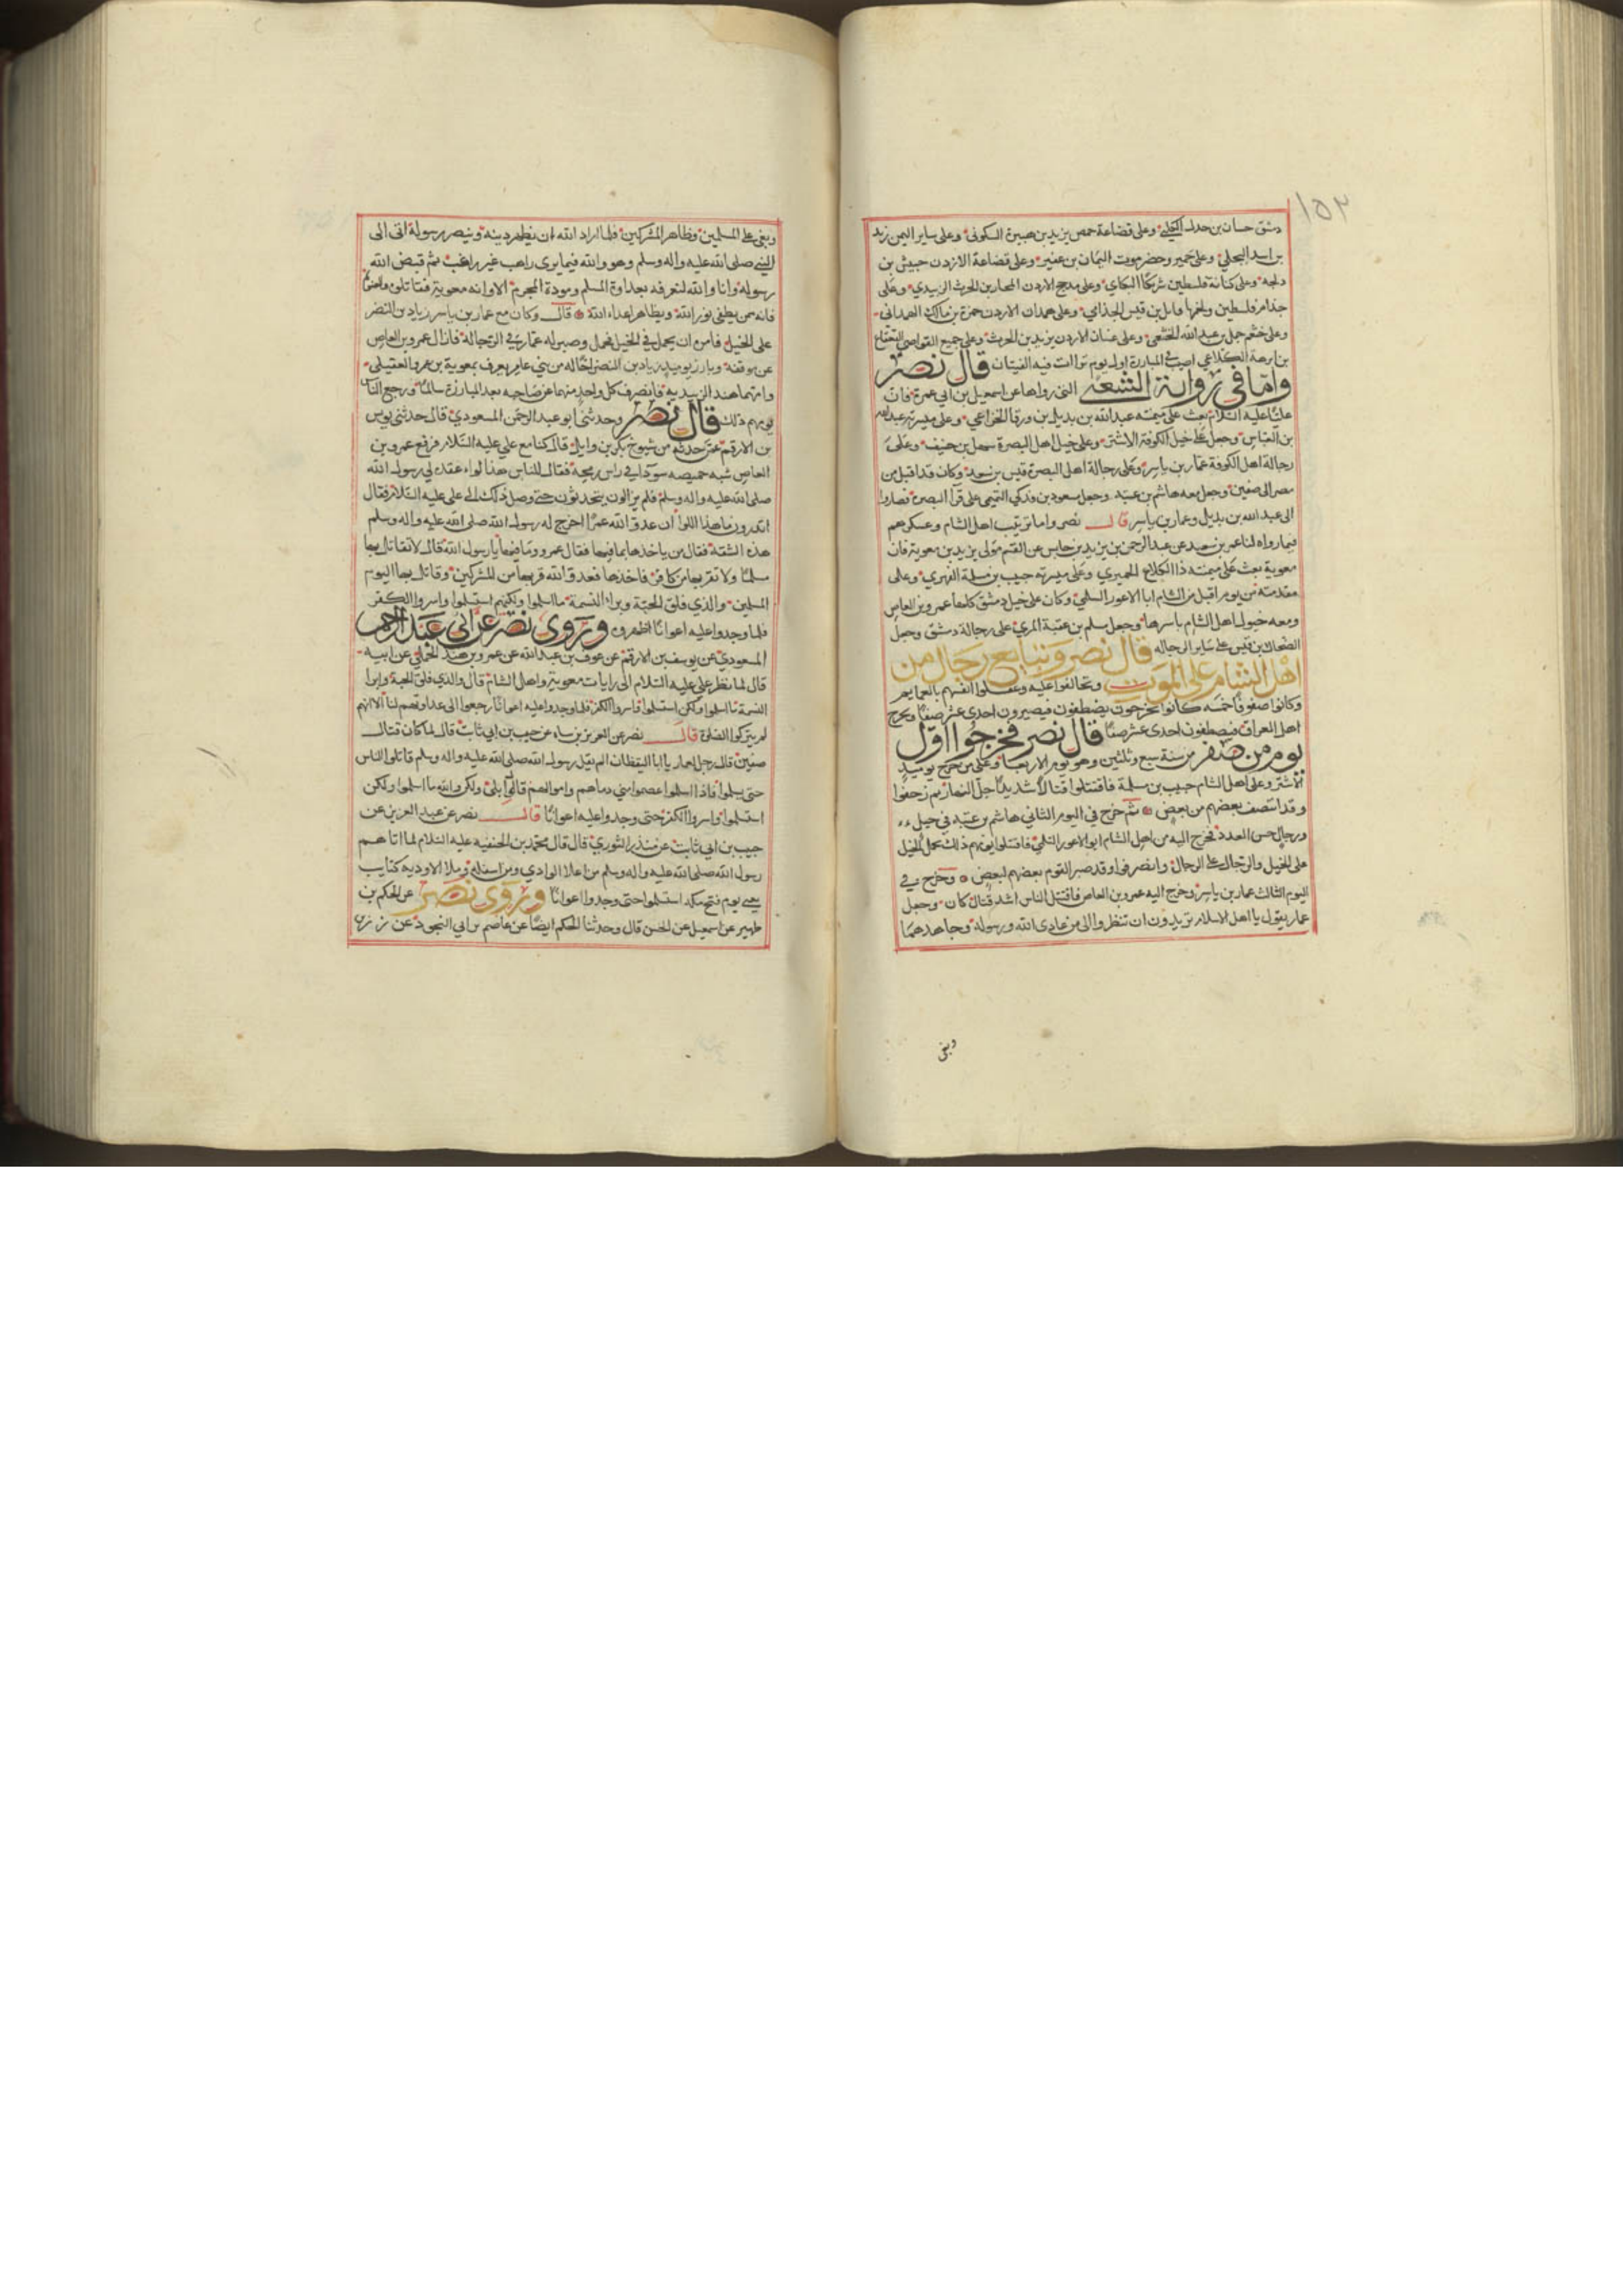 ١٥٢
دمشق حسان بن بحدل الكلبي وعلى قضاعة حمص يزيد بن هبيرة السكوني وعلى ساير اليمن زيد
بن اسد البجلي وعلى حمير وحضرموت اليمان بن عفير وعلى قضاعة الاردن حبيش بن
دلجه وعلى كنانة فلسطين شريكا الكناي وعلى مذحج الاردن المخارق بن الحرث الزبيدي وعلى
جذام فلسطين ولخمها ناتل بن قيس الجذامي وعلى همدان الاردن حمزة بن مالك الهمداني
وعلى خثعم حمل بن عبد الله الخثعمي وعلى غسان الاردن يزيد بن الحرث وعلى جميع القواصي القعقاع
بن ابرهة الكلاعي اصيب في المبارزة اول يوم تراات فيه الفيتان قال نصر
واما في رواية الشعبي التي رواها عن اسمعيل بن ابي عمرة فان
عليا عليه السلام بعث على ميمنته عبد الله بن بديل بن ورقا الخزاعي وعلى ميسرته عبد الله
بن العباس وجعل على خيل الكوفة الاشتر وعلى خيل اهل البصرة سهل بن حنيف وعلى
رجالة اهل الكوفة عمار بن ياسر وعلى رجالة اهل البصرة قيس بن سعد وكان قد اقبل من
مصر الى صفين وجعل معه هاشم بن عتبه وجعل مسعود بن فدكي التميمي على قرآ البصرة فصاروا
الى عبد الله بن بديل وعمار بن ياسر قال نصر واما ترتيب اهل الشام وعسكرهم
فيما رواه لنا عمر بن سعيد عن عبد الرحمن بن يزيد بن جابر عن القسم مولى يزيد بن معوية فان
معوية بعث على ميمنته ذا الكلاع الحميري وعلى ميسرته حبيب بن مسلمة الفهري وعلى
مقدمته من يوم اقبل من الشام ابا الاعور السلمي وكان على خيل دمشق كلها عمرو بن العاص
ومعه خيول اهل الشام باسرها وجعل مسلم بن عقبة المري على رجالة دمشق وجعل
الضحاك بن قيس على ساير الرجاله قال نصر وتبايع رجال من
اهل الشام على الموت وتحالفوا عليه وعقلوا انفسهم بالعمايم
وكانوا صفوفا خمسه كانوا يخرجون يصطفون فيصيرون احدى عشر صفا ويخرج
اهل العراق فيصطفون احدى عشر صفا قال نصر فخرجوا اول
يوم من صفر من سنة سبع وثلثين وهو يوم الاربعا وعلى من خرج يوميذ
الاشتر وعلى اهل الشام حبيب بن مسلمة فاقتتلوا قتالا شديدا جل النهار ثم زحفوا
وقد انتصف بعضهم من بعض ثم خرج في اليوم الثاني هاشم بن عتبه في خيل
ورجال حسن العدد فخرج اليه من اهل الشام ابو الاعور السلمي فاقتتلوا يومهم ذلك تحمل الخيل
على الخيل والرجال على الرجال وانصرفوا وقد صبر القوم بعضهم لبعض وخرج في
اليوم الثالث عمار بن ياسر وخرج اليه عمرو بن العاص فاقتتل الناس اشد قتال كان وجعل
عمار يقول يا اهل الاسلام تريدون ان تنظروا الى من عادى الله ورسوله وجاهدهما
وبغى
وبغى على المسلمين وظاهر المشركين فلما اراد الله ان يظهر دينه وينصر رسوله اتى الى
النبي صلى الله عليه واله وسلم وهو والله فيما يرى راهب غير راغب ثم قبض الله
رسوله وانا والله لنعرفه بعداوة المسلم ومودة المجرم الا وانه معوية فقاتلوه والعنوه
فانه ممن يطفى نور الله ويظاهر اعداء الله قال وكان مع عمار بن ياسر زياد بن النضر
على الخيل فامره ان يحمل في الخيل فحمل وصبر له عمار في الرجالة فازال عمرو بن العاص
عن موقفه وبارز يوميذ زياد بن النضر اخا له من بني عامر يعرف بمعوية بن عمرو العقيلي
وامهما هند الزبيديه فانصرف كل واحد منهما عن صاحبه بعد المبارزة سالما ورجع الناس
يومهم ذلك قال نصر وحدثني ابو عبد الرحمن المسعودي قال حدثني يونس
بن الارقم عمن حدثه من شيوخ بكر بن وايل قال كنا مع علي عليه السلام فرفع عمرو بن
العاص شبه خميصه سودا في راس رمحه فقال للناس هذا لواء عقده لي رسول الله
صلى الله عليه واله وسلم فلم يزالون يتحدثون حتى وصل ذلك الى علي عليه السلام فقال
اتدرون ما هذا اللوا ان عدو الله عمرا اخرج له رسول الله صلى الله عليه واله وسلم
هذه الشقة فقال من ياخذها بما فيها فقال عمرو وما فيها يا رسول الله قال لا تقاتل بها
مسلما ولا تقربها من كافر فاخذها فعدو الله قربها من المشركين وقاتل بها اليوم
المسلمين والذي فلق الحبة وبرا النسمة ما اسلموا ولكنهم استسلموا واسروا الكفر
فلما وجدوا عليه اعوانا اظهروه وروى نصر عن ابي عبد الرحمن
المسعودي عن يوسف بن الارقم عن عوف بن عبد الله عن عمرو بن هند الجملي عن ابيه
قال لما نظر علي عليه السلام الى رايات معوية واهل الشام قال والذي فلق الحبة وبرا
النسمة ما اسلموا ولكن استسلموا واسروا الكفر فلما وجدوا عليه اعوانا رجعوا الى عداوتهم لنا الا انهم
لم يتركوا الصلوة قال نصر عن العزيز بن سياه عن حبيب بن ابي ثابت قال لما كان قتال
صفين قال رجل لعمار يا ابا اليقظان الم يقل رسول الله صلى الله عليه واله وسلم قاتلوا الناس
حتى يسلموا فاذا اسلموا عصموا مني دماهم واموالهم قال بلى ولكن والله ما اسلموا ولكن
استسلموا واسروا الكفر حتى وجدوا عليه اعوانا قال نصر عن عبد العزيز عن
حبيب بن ابي ثابت عن منذر الثوري قال قال محمد بن الحنفيه عليه السلام لما اتاهم
رسول الله صلى الله عليه واله وسلم من اعلا الوادي ومن اسفله وملا الاوديه كتايب
يعني يوم فتح مكه استسلموا حتى وجدوا اعوانا وروى نصر عن الحكم بن
ظهير عن اسمعيل عن الحسن قال وحدثنا الحكم ايضا عن عاصم بن ابي النجود عن زر